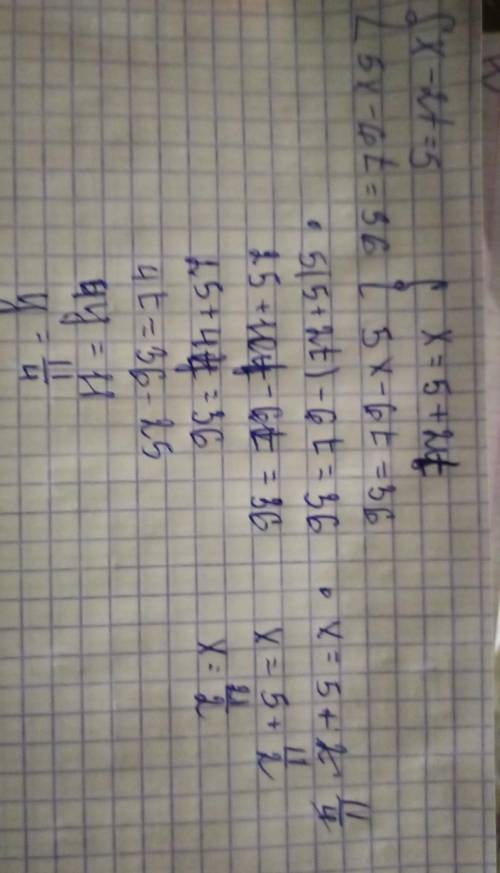 { x - 2t = 5
{ 5x - 6t = 36
{ x = 5 + 2t
{ 5x - 6t = 36
• 5(5 + 2t) - 6t = 36
25 + 10t - 6t = 36
25 + 4t = 36
4t = 36 - 25
4y = 11
y = 11/4
• x = 5 + 2 11/4
x = 5 + 11/2
x = 21/2